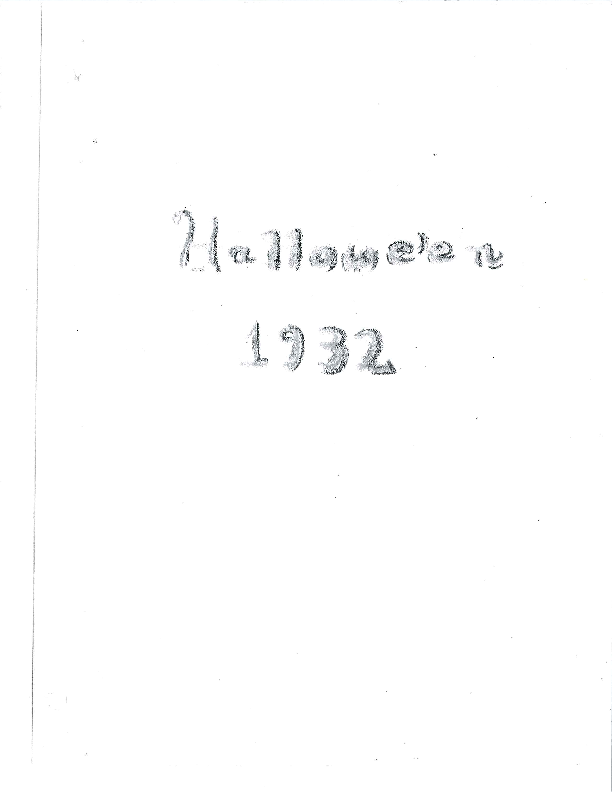 Hallowe'en
1932